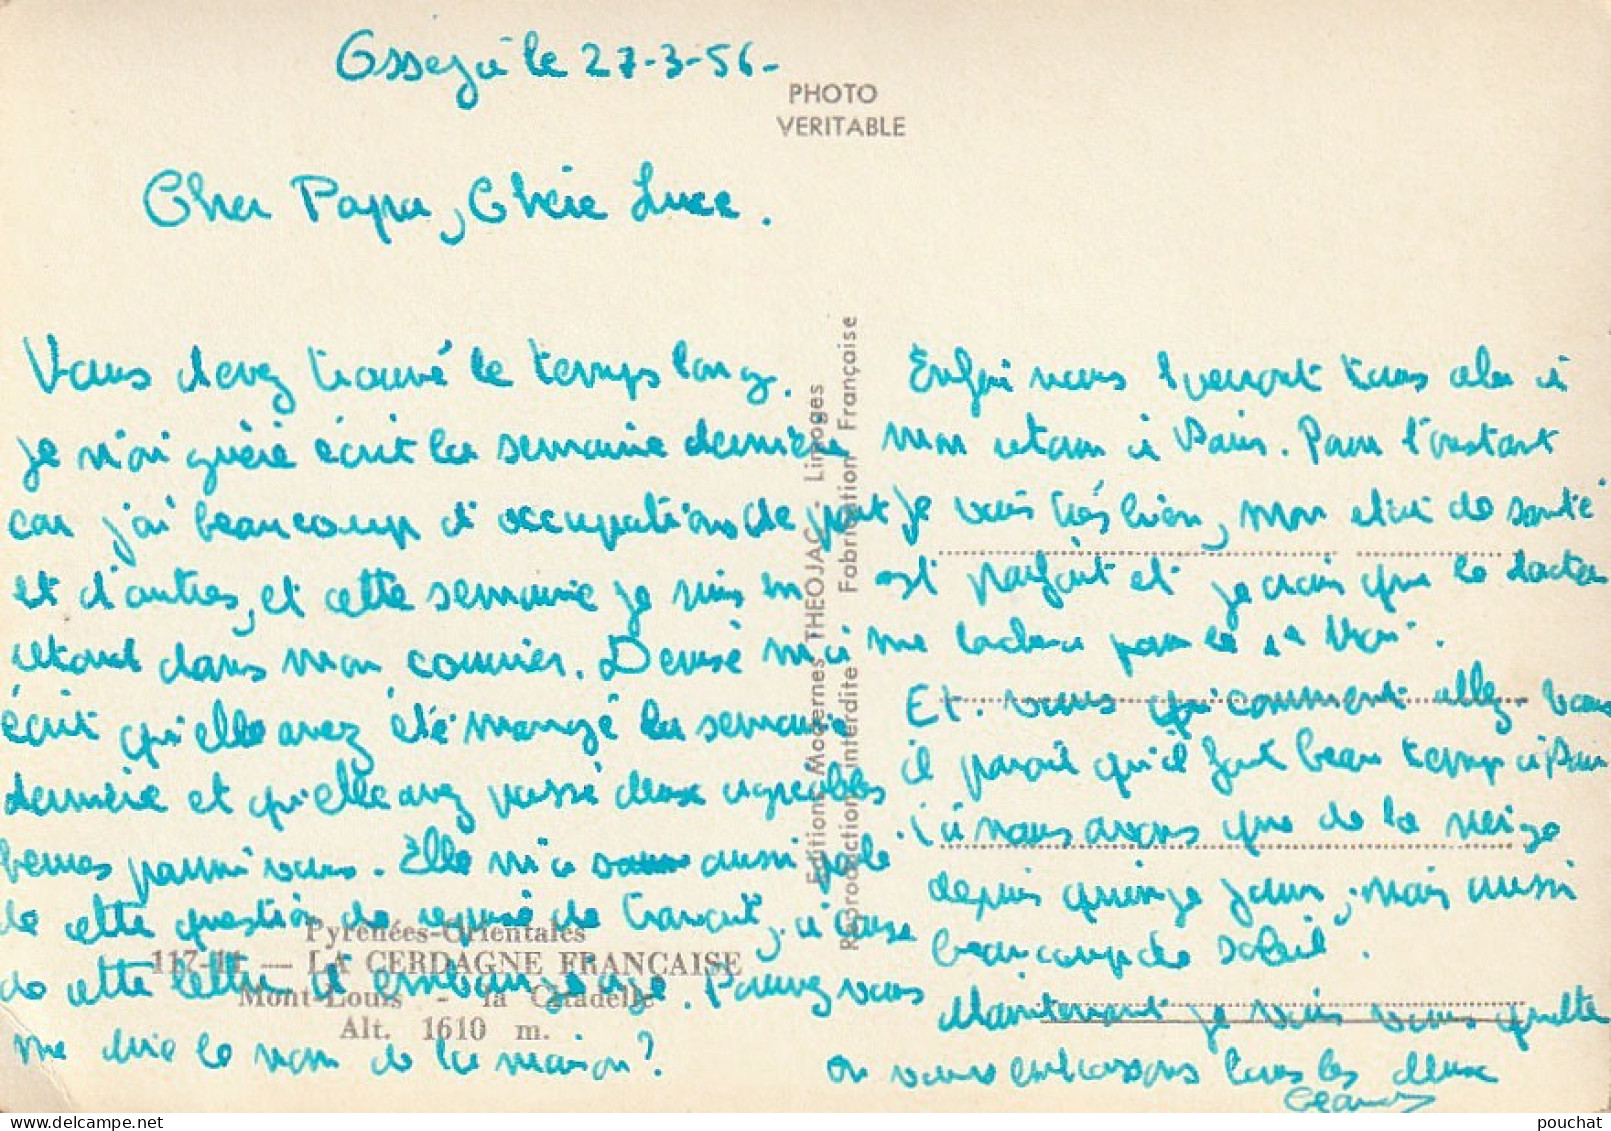 Osséja le 27-3-56-
PHOTO
VERITABLE
Cher Papa, Chère Luce.
Vous devez trouvé le temps long.
je n'ai guère écrit la semaine dernière
car j'ai beaucoup d'occupations de part
et d'autres, et cette semaine je suis en
retard dans mon courrier. Denise m'a
écrit qu'elle avez été mangé la semaine
dernière et qu'elle avez passé deux agréables
heures parmi vous. Elle m'a aussi parlé
de cette question de reprise de travail, à cause
de cette lettre d'embauchage. Pouvez vous
me dire le nom de la maison?
Pyrénées-Orientales
117-11 — LA CERDAGNE FRANÇAISE
Mont-Louis - la Citadelle
Alt. 1610 m.
Editions Modernes THEOJAC - Limoges
Reproduction interdite Fabrication Française
Enfin nous verront tous cela à
mon retour à Paris. Pour l'instant
je vais très bien, mon état de santé
est parfait et je crois que le docteur
me lachera pour le 1er Mai.
Et vous qui comment allez-vous
il parait qu'il fait beau temps à Paris
ici nous avons que de la neige
depuis quinze jours, mais aussi
beaucoup de soleil.
Maintenant je vais vous quitter
en vous embrassons tous les deux